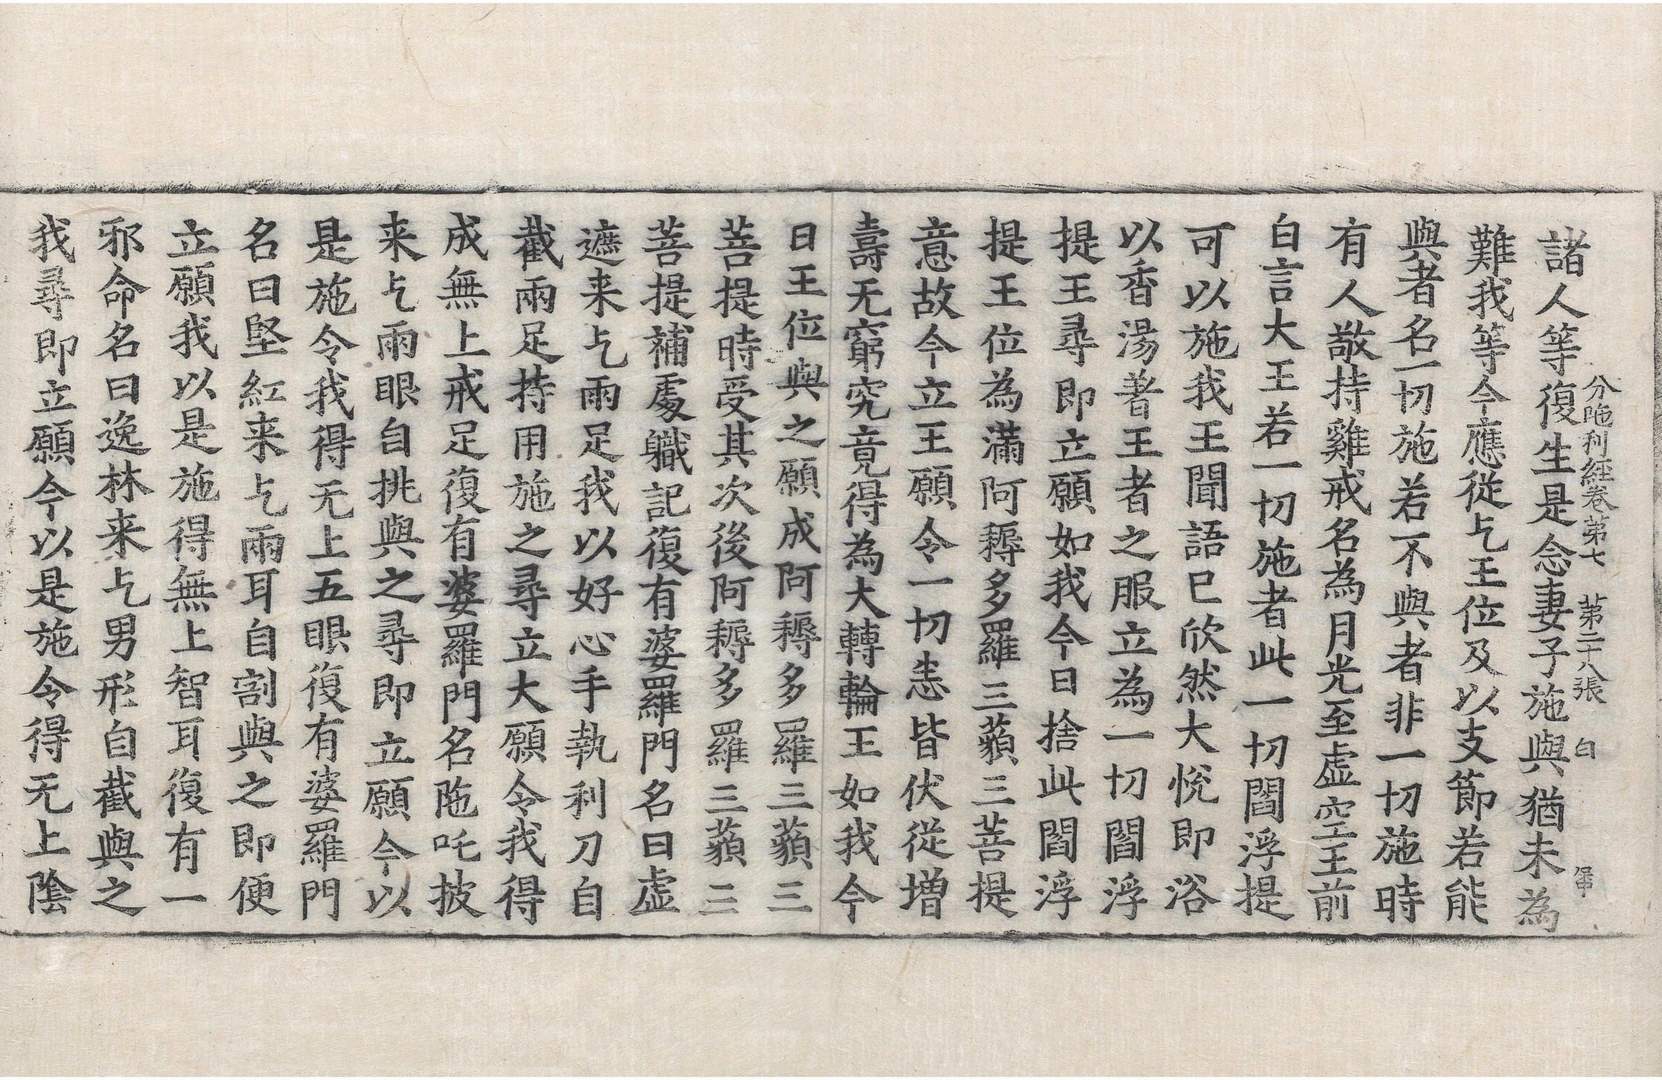 分陁利經卷第七 第二十八張 白
諸人等復生是念妻子施與猶未為
難我等今應從乞王位及以支節若能
與者名一切施若不與者非一切施時
有人敬持雞戒名為月光至虛空王前
白言大王若一切施者此一切閻浮提
可以施我王聞語已欣然大悅即浴
以香湯著王者之服立為一切閻浮
提王尋即立願如我今日捨此閻浮
提王位為滿阿耨多羅三藐三菩提
意故今立王願令一切悉皆伏從增
壽无窮究竟得為大轉輪王如我今
日王位與之願成阿耨多羅三藐三
菩提時受其次後阿耨多羅三藐三
菩提補處職記復有婆羅門名曰虛
遮来乞兩足我以好心手執利刀自
截兩足持用施之尋立大願令我得
成無上戒足復有婆羅門名陁吒披
来乞兩眼自挑與之尋即立願今以
是施令我得无上五眼復有婆羅門
名曰堅紅来乞兩耳自割與之即便
立願我以是施得無上智耳復有一
邪命名曰逸林来乞男形自截與之
我尋即立願今以是施令得无上陰